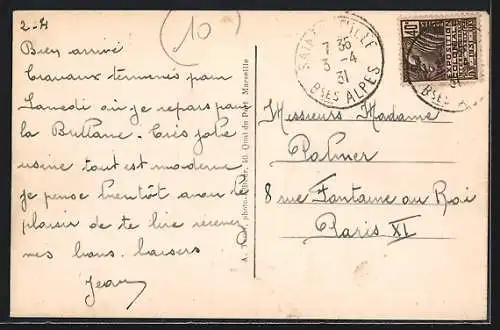 2-4
10
Bien arrivé
travaux terminés pour
Samedi où je repars pour
la Buttane. Très jolie
usine tout est moderne
je pense bientôt avoir le
plaisir de te lire recevez
mes bons baisers
Jean
40 Quai du Port Marseille
7 35
3 -4
31
Bses ALPES
Messieurs Madame
Palmer
8 rue Fontaine au Roi
Paris XI